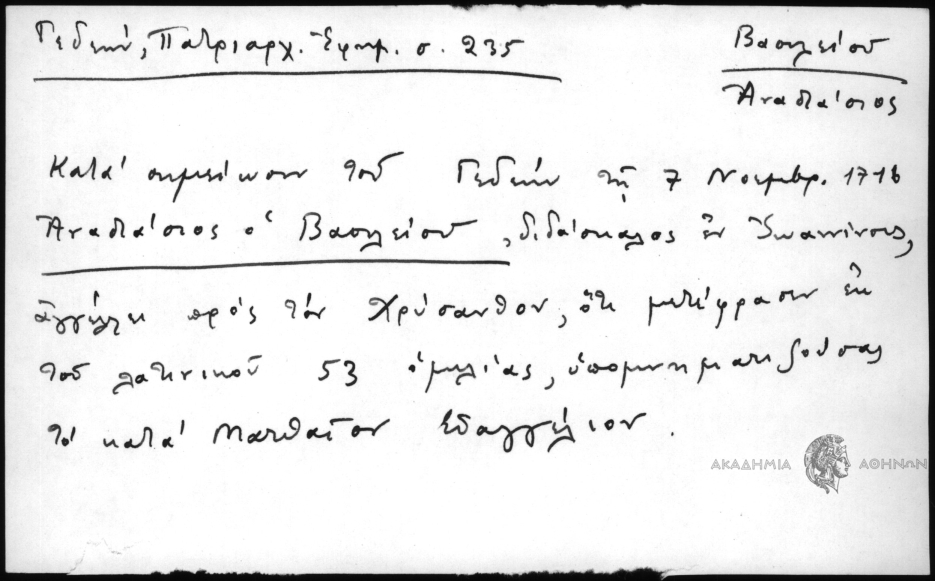 Γεδεών, Πατριαρχ. Ἐφημ. σ. 235
Βασιλείου
Ἀναστάσιος
Κατά σημείωσιν τοῦ Γεδεών τῇ 7 Νοεμβρ. 1716
Ἀναστάσιος ὁ Βασιλείου, διδάσκαλος ἐν Ἰωαννίνοις,
ἀγγέλλει πρός τόν Χρύσανθον, ὅτι μετέφρασεν ἐκ
τοῦ λατινικοῦ 53 ὁμιλίας, ὑπομνηματιζούσας
τό κατά Ματθαῖον Εὐαγγέλιον.
ΑΚΑΔΗΜΙΑ ΑΘΗΝΩΝ